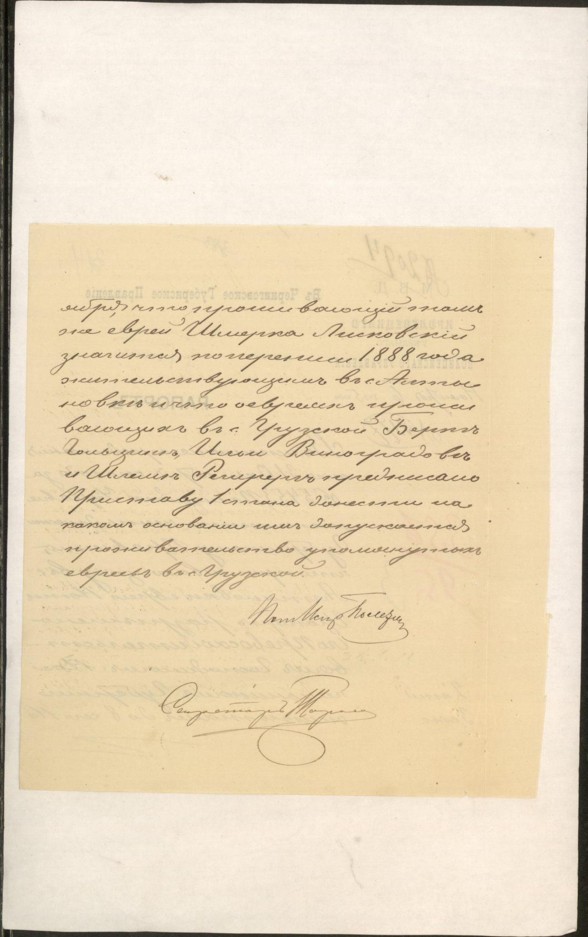 ября что проживающій тамъ
же еврей Шмерка Лисковскій
значится по переписи 1888 года
жительствующимъ въ с. Анты
новкѣ и что о евреяхъ прожи
вающихъ въ с. Грузской Беркѣ
Гольцинъ Ильи Виноградовѣ
и Шлемѣ предписано
Приставу 1 стана донести на
какомъ основаніи имъ допускается
прожи вательство упомянутыхъ
евреевъ въ с. Грузской.
Секретарь
Въ Черниговское Губернское Правленіе